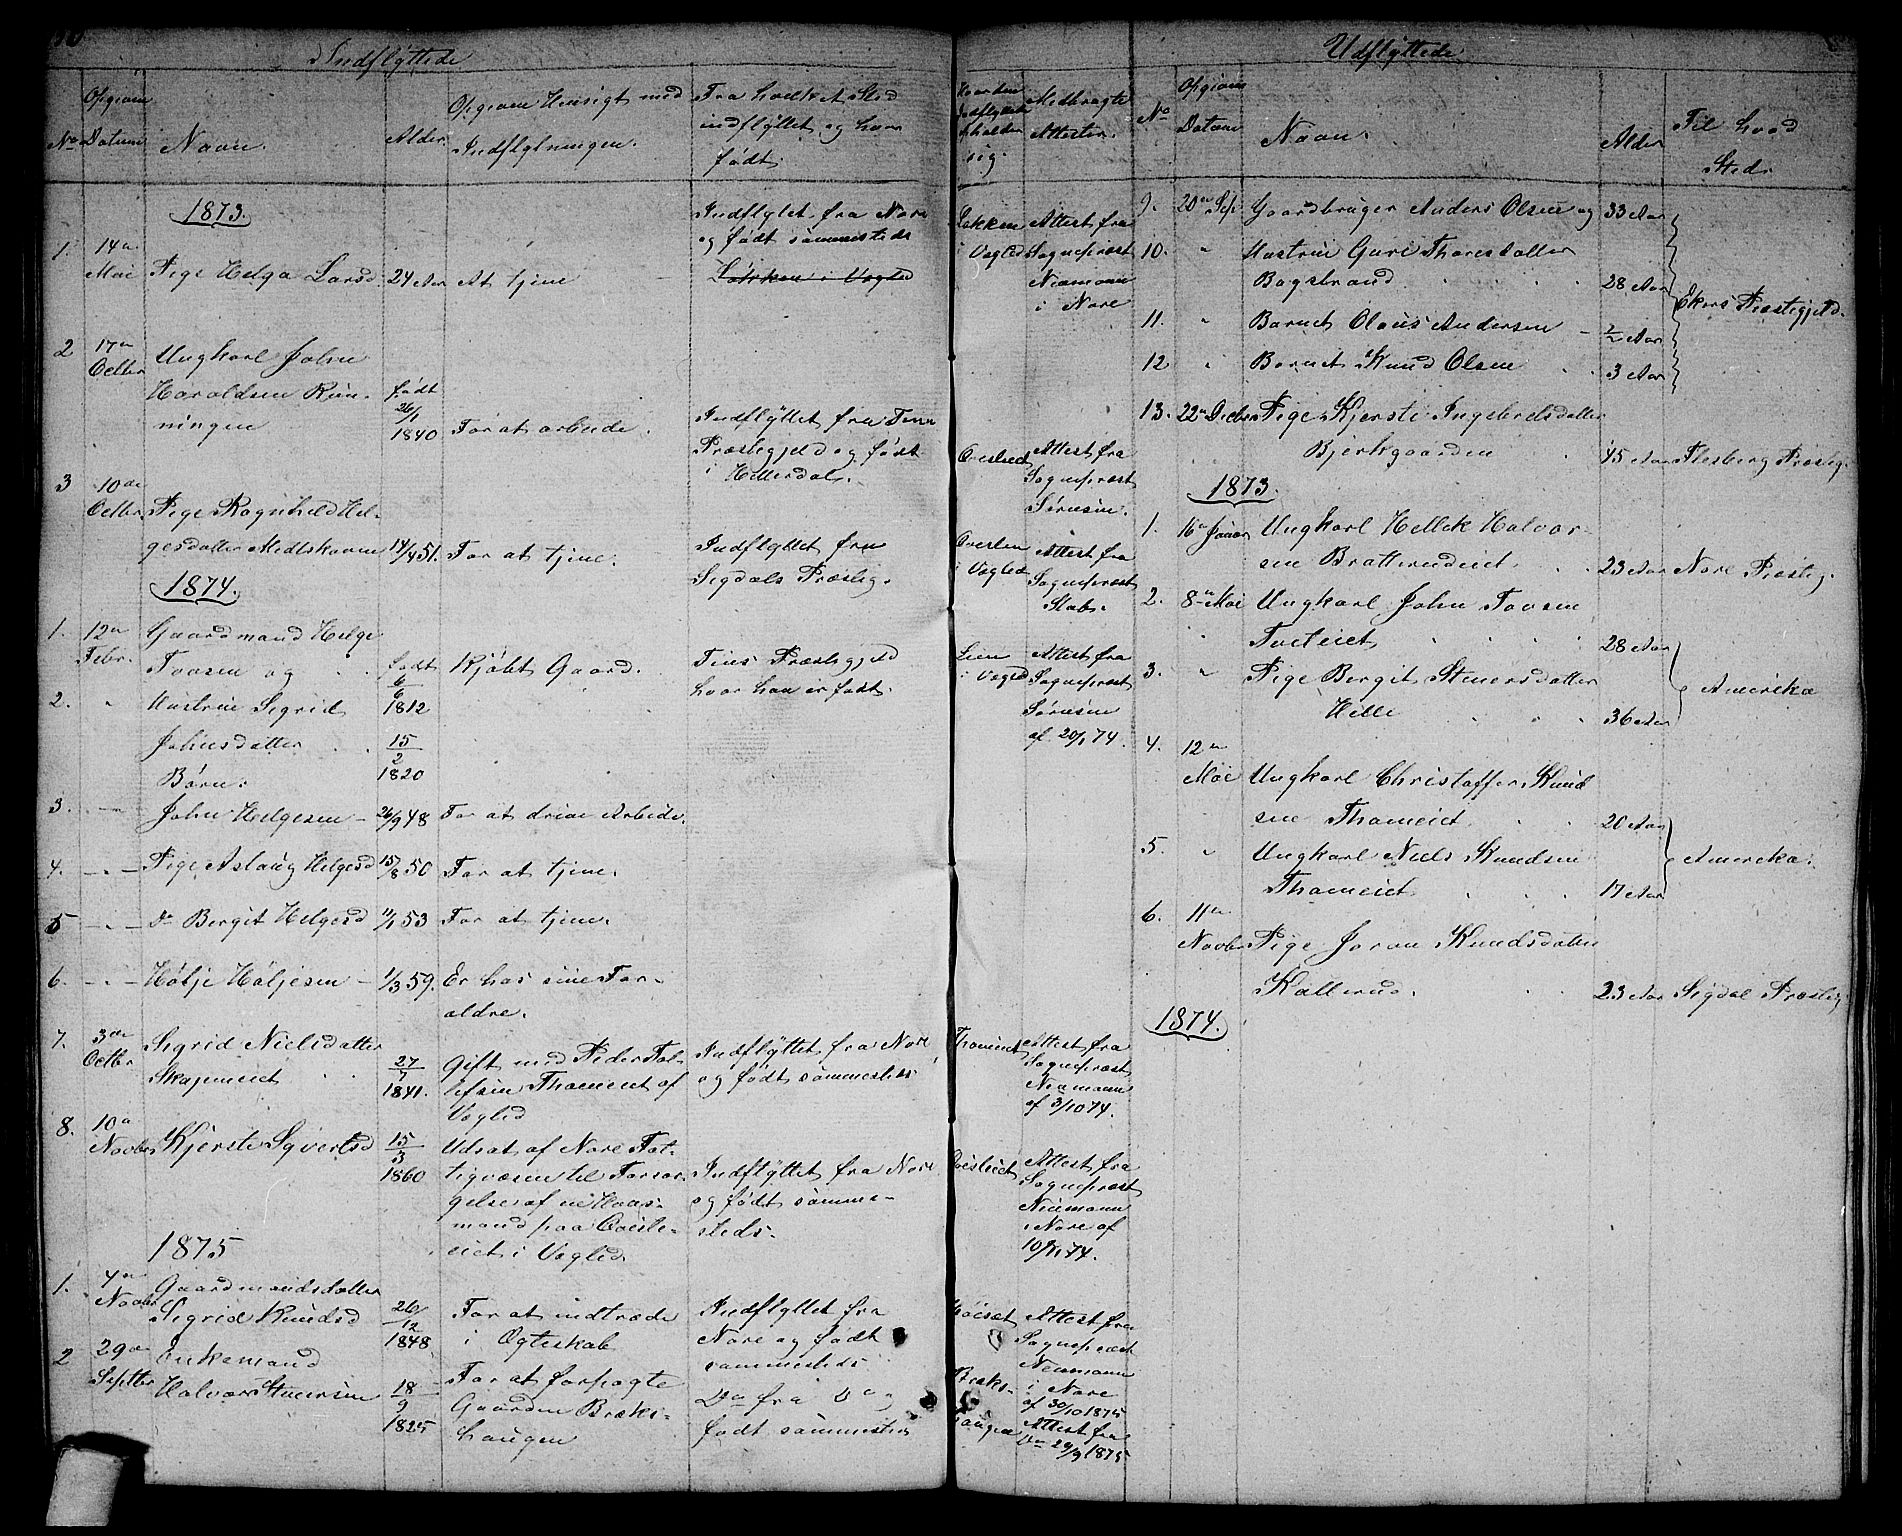 Indflyttede
No
Opgiven Datum
Navn.
Alder
Opgiven Hensigt med Indflytningen.
Fra hvilket Sted indflyttet og hvor født.
Medbragte Attester.
1873.
1. 14de Mai Pige Helga Larsd. 24 Aar At tjene
Indflyttet fra Nore
og født sammesteds
Løkken i Vegled
Løkken i Vegled
Attest fra
Sognepræst
Neumann
i Nore
2 17de Octbr Ungkarl John
Haraldsen Røn-
ningen
født 26/1 1840 For at arbeide.
Indflyttet fra Tins
Præstegjeld og født
i Hitterdal.
Attest fra
Sognepræst
Sørensen.
3 10de Octbr. Pige Ragnhild Hel-
gesdatter Medtskoven 14/4 51. For at tjene.
Indflyttet fra
Sigdals Præsteg.
i Vegled
Attest fra
Sognepræst
1874.
1. 12te Febr. Gaardmand Helge
Tovsen og født 6/6 1812 Kjøbt Gaard.
Tins Præstegjeld
hvor han er født.
Lien
i Vegled
Attest fra
Sognepræst
Sørensen
af 20/1 74.
2. " Hustrue Sigrid
Johnsdatter 15/2 1820
Børn:
3. — John Helgesen – 26/9 48 For at drive Arbeide.
4. – " – Pige Aslaug Helgesd 15/8 50 For at tjene.
5 – " – Do Bergit Helgesd 11/1 53 For at tjene.
6. – " – Høljе Høljesen – 1/3 59. Er hos sine For-
ældre.
7. 3de Octbr Sigrid Nielsdatter
Skapmeiet 27/7 1841. Gift med Peder Tol-
lefsen Thomeiet af
Vegled
Indflyttet fra Nore
og født sammesteds
Thomeiet
Attest fra
Sognepræst
Neumann
af 3/10 74.
8. 10de Novbr Kjersti Syvertsd 15/3 1860
Udsat af Nore Fat-
tigvæsen til Forsør-
gelse af en Huus-
mand paa Overle-
eiet i Vegled
Indflyttet fra Nore
og født samme-
steds.
Attest fra
Sognepræst
Neumann
i Nore af
10/11 74.
1875
1. 4de Novbr Gaardmandsdatter
Sigrid Knudsd 26/12 1848
For at indtræde
i Ægteskab
Indflyttet fra
Nore og født
sammesteds
Attest fra
Sognepræst
Neumann
i Nore
af 30/10 1875
2 29de Septbr Enkemand
Halvor Steensen 18/9 1825
For at forpagte
Gaarden Bræks-
haugen
Do fra Do og
født sammesteds
Bræks-
haugen
Attest fra
Do 29/9 1875
Udflyttede
No
Opgiven Datum
Navn.
Alder
Til hvad Sted.
9. 20de Sep. Gaardbruger Anders Olsen og 33 Aar
10. " Hustrue Guri Thoresdatter
Bogstrand 28 Aar
11. " Barnet Olaus Andersen – ½ Aar
12 " Barnet Knud Olsen 3 Aar
Ekers Præstegjeld.
13. 22de Decbr Pige Kjersti Ingebretsdatter
Bjerkgaarden 45 Aar Flesberg Præsteg.
1873.
1. 16de Januar Ungkarl Hellek Halvor-
sen Bratterudeiet 23 Aar Nore Præsteg.
2. 8de Mai Ungkarl John Tovsen
" Tveteiet 28 Aar
3. " Pige Bergit Steensdatter
Helle 36 Aar
Amerika
4. 12te Mai Ungkarl Christoffer Knud
sen Thomeiet 20 Aar
5. " Ungkarl Niels Knudsen
Thomeiet 17 Aar
Amerika.
6. 11te Novbr Pige Joran Knudsdatter
Kallerud. 23 Aar Sigdal Præsteg.
1874.